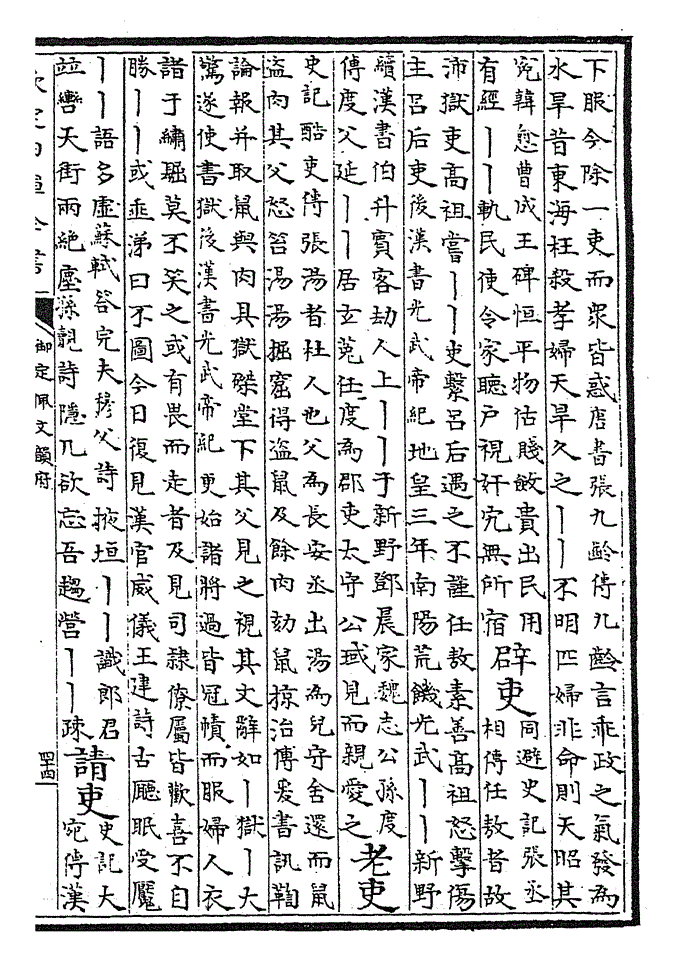 下服今除一吏而衆皆惑唐書張九齡傳九齡言乖政之氣發為
水旱昔東海枉殺孝婦天旱久之丨丨不明匹婦非命則天昭其
寃韓愈曹成王碑恒平物估賤斂貴出民用
有經丨丨軌民使令家聽户視奸宄無所宿
辟吏
同避史記張丞
相傳任敖者故
沛獄吏髙祖嘗丨丨吏繫吕后遇之不謹任敖素善髙祖怒擊傷
主吕后吏後漢書光武帝紀地皇三年南陽荒饑光武丨丨新野
續漢書伯升賓客劫人上丨丨于新野鄧晨家魏志公孫度
傳度父延丨丨居玄菟任度為郡吏太守公琙見而親愛之
老吏
史記酷吏傳張湯者杜人也父為長安丞出湯為兒守舍還而鼠
盗肉其父怒笞湯湯掘窟得盗鼠及餘肉劾鼠掠治傳爰書訊鞫
論報并取鼠與肉具獄磔堂下其父見之視其文辭如丨獄丨大
驚遂使書獄後漢書光武帝紀更始諸將過皆冠幘而服婦人衣
諸于繡镼莫不笑之或有畏而走者及見司隷僚屬皆歡喜不自
勝丨丨或垂涕曰不圖今日復見漢官威儀王建詩古廳眠受魘
丨丨語多虚蘇軾答完夫穆父詩掖垣丨丨識郎君
並轡天街兩絶塵孫覿詩隱几欲忘吾趨營丨丨疎
請吏
史記大
宛傳漢
欽定四庫全書
御定佩文韻府
四十四